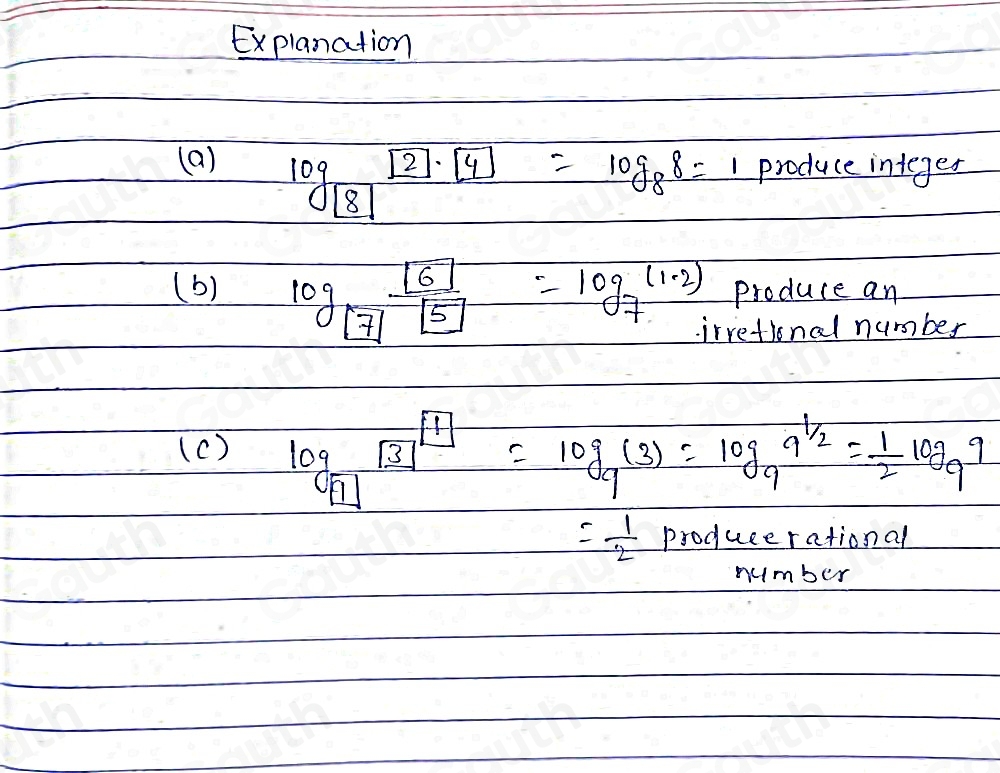 Explanation
(a) log_[8] [2] · [4] = log_8 8 = 1 produce integer
(b) log_[7] [6]/[5] = log_7 (1.2) produce an
irretional number
(c) log_[9] [3]^[1] = log_9 (3) = log_9 9^1/2 = 1/2 log_9 9
= 1/2 produce rational
number